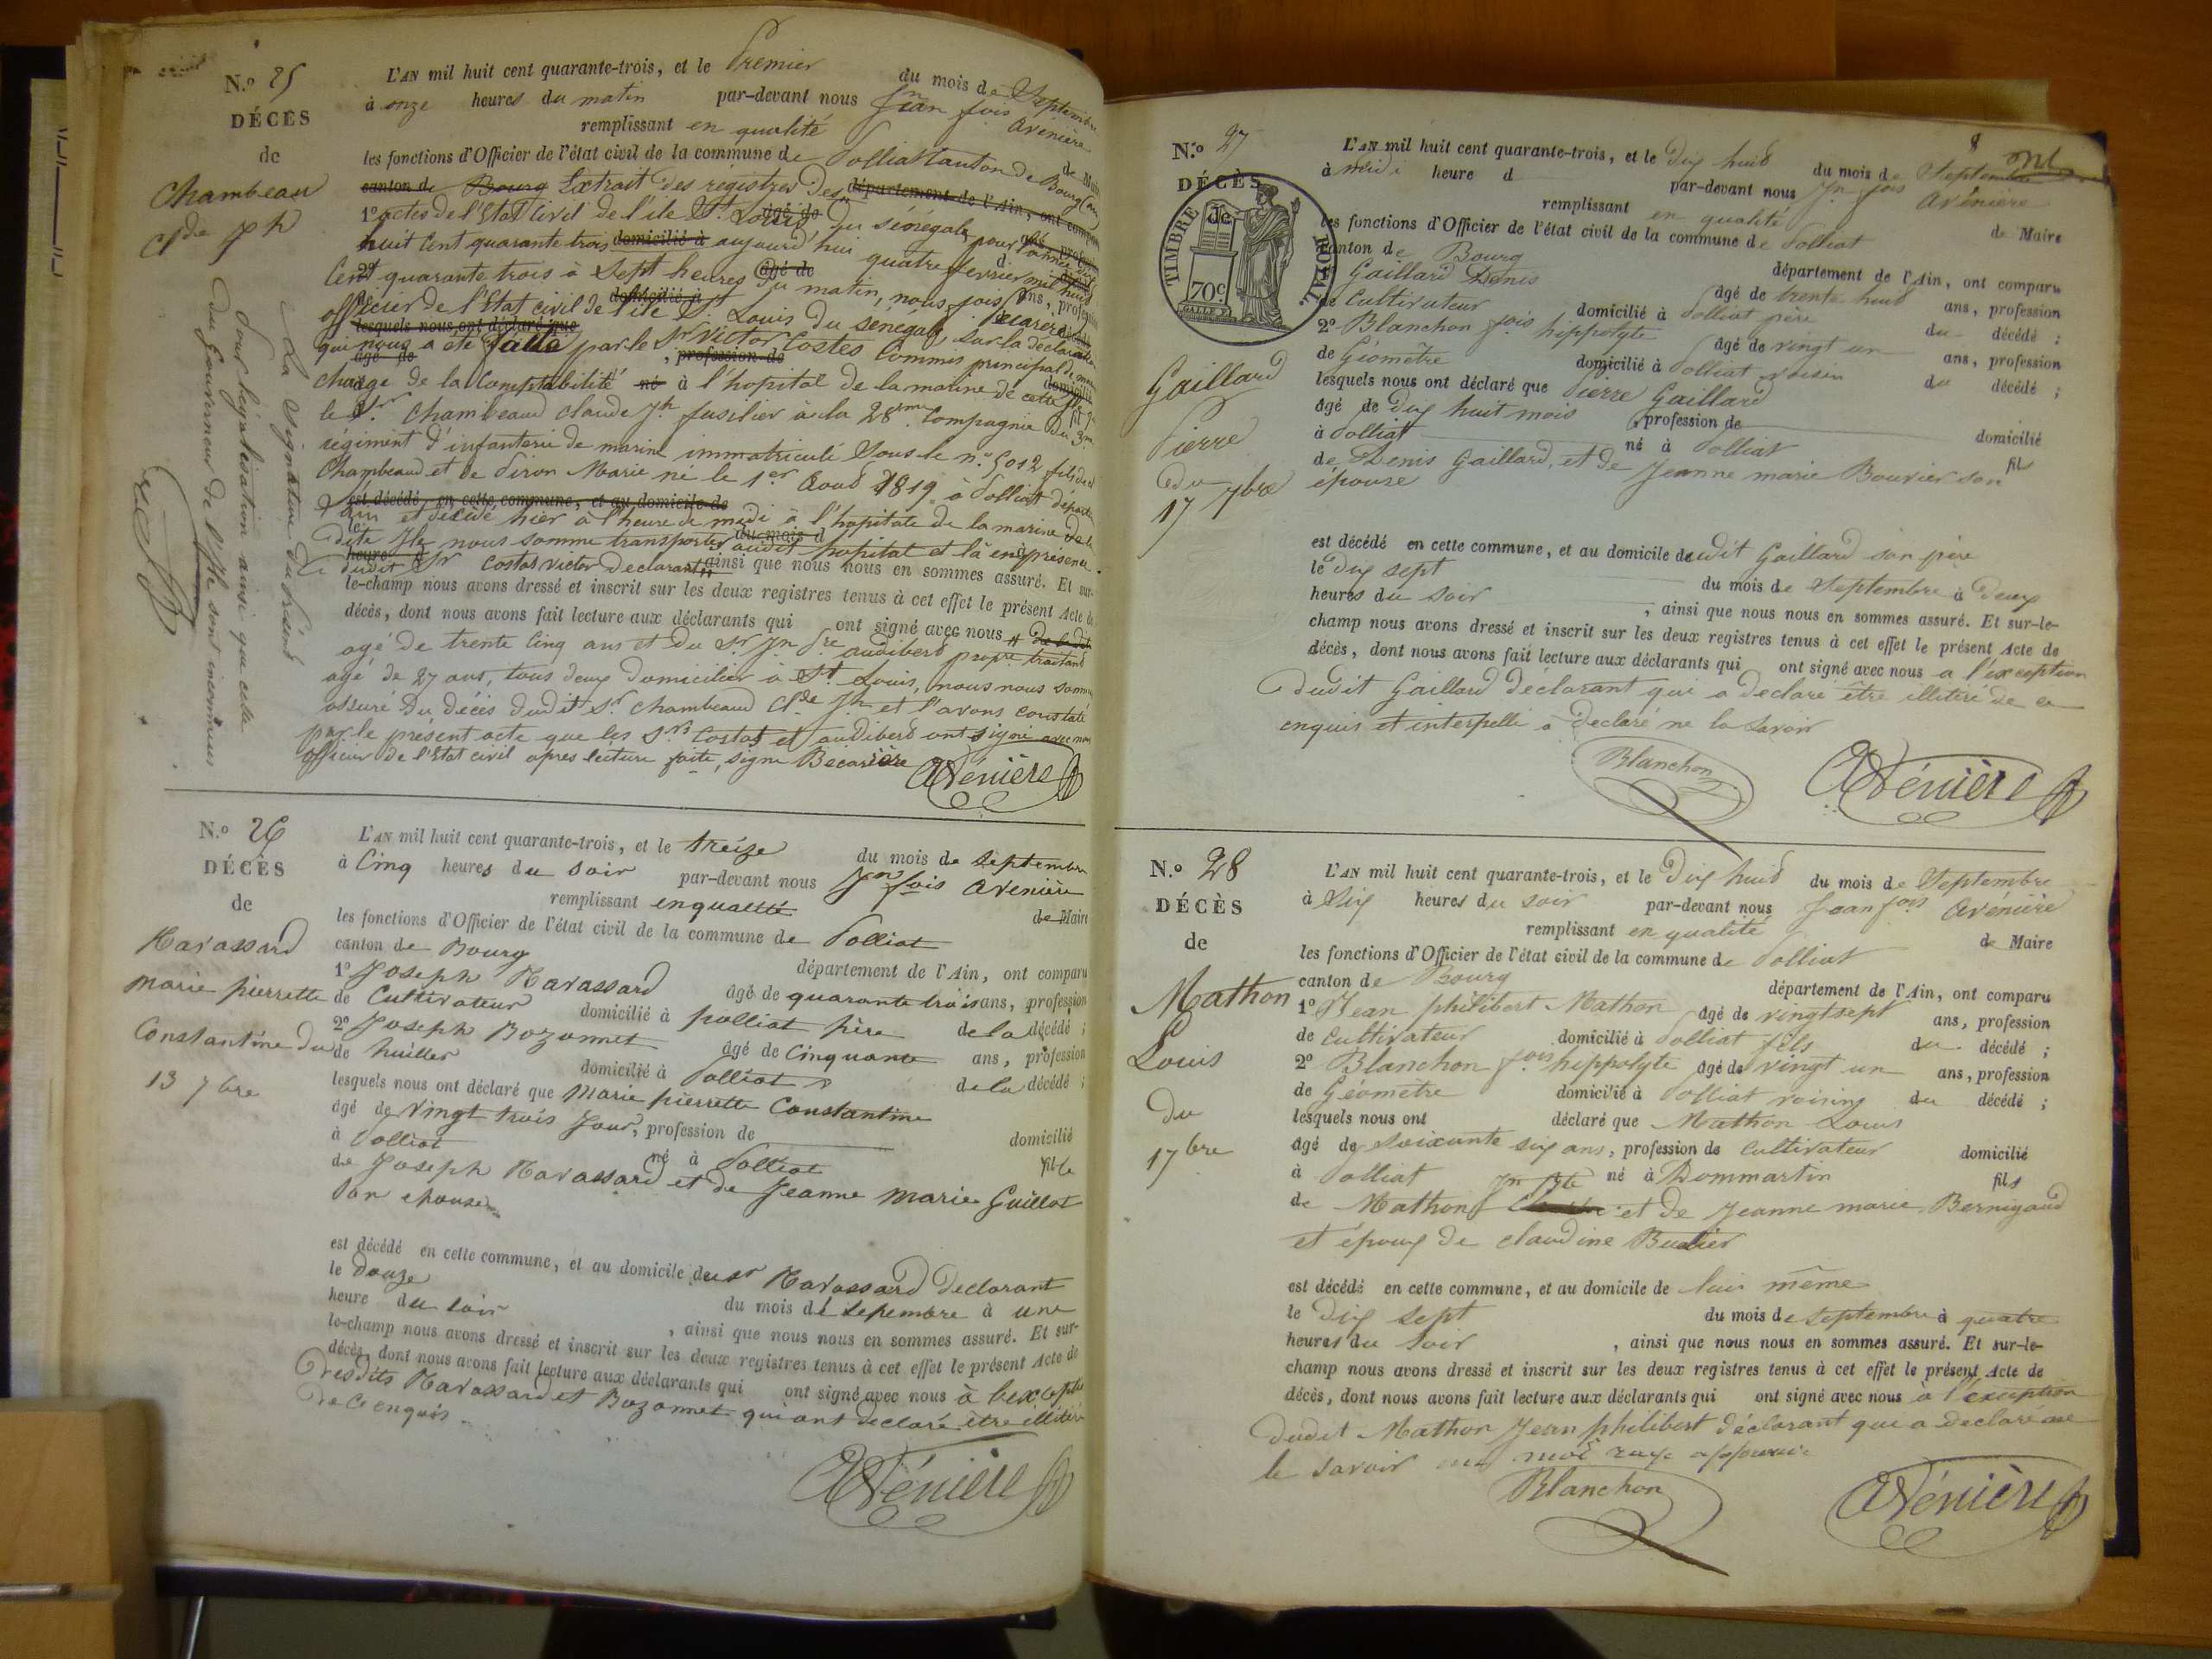 N.o 25
DÉCÈS
de
Chambeau
Cde Jph
La signature du présent
Pour légalisation ainsi que celle
du Gouverneur de l'Ile sont inconnues
L'AN mil huit cent quarante-trois, et le Premier du mois de Septembre
à onze heures du matin par-devant nous Jean fois Avenière
remplissant en qualité de Maire
les fonctions d'Officier de l'état civil de la commune de Polliat Canton de Bourg
canton de Bourg Extrait des registres des département de l'Ain, ont comparu
1o actes de l'Etat Civil de l'ile St Louis âgé de du sénégal, pour l'année
huit Cent quarante trois domicilié à aujourd'hui quatre fevrier mil huit
Cent quarante trois à Sept heures âgé de du matin, nous fois Becarère
officier de l'Etat civil de l'ile domicilié à St Louis du sénégal, sur la déclaration
lesquels nous ont déclaré que
qui nous a été faite par le Sr Victor Costes Commis principal de
âgé de , profession de
chargé de la Comptabilité né à l'hopital de la marine de cette
le Sr Chambeaud Claude Jh fusilier à la 28me Compagnie du 3me
régiment d'infanterie de marine immatriculé Sous le no 5012 fils de
Chambeaud et de Piron Marie né le 1er Aoud 1819 à Polliat
est décédé en cette commune, et au domicile de
ain et décédé hier à l'heure de midi à l'hopitale de la marine de la
dite Ile nous somme transportés audit hopital et là en présence
dudit Sr Costas victor Declarant ainsi que nous nous en sommes assuré. Et sur-
le-champ nous avons dressé et inscrit sur les deux registres tenus à cet effet le présent Acte de
décès, dont nous avons fait lecture aux déclarants qui ont signé avec nous
agé de trente Cinq ans et du Sr Jn Bre audiberd propre traitand
agé de 27 ans, tous deux domicilier à St Louis, nous nous somme
assuré du décés dudit Sr Chambeaud Cde Jh et l'avons constaté
par le présent acte que les Srs Costas et audiberd ont signé avec nous
officier de l'Etat civil apres lécture faite, signé Bécarière
Avénière
N.o 26
DÉCÈS
de
Ravassard
marie pierrette
Constantine du
13 7bre
L'AN mil huit cent quarante-trois, et le treize du mois de Septembre
à Cinq heures du soir par-devant nous Jn fois Avenière
remplissant en qualité de Maire
les fonctions d'Officier de l'état civil de la commune de Polliat
canton de Bourg département de l'Ain, ont comparu
1o Joseph Ravassard âgé de quarante trois ans, profession
de Cultivateur domicilié à polliat père de la décédé ;
2o Joseph Bozonnet âgé de Cinquante ans, profession
de huiller domicilié à Polliat de la décédé ;
lesquels nous ont déclaré que Marie pierrette Constantine
âgé de Vingt trois Jour, profession de domicilié
à Polliat né à Polliat fille
de Joseph Ravassard et de Jeanne Marie Guillot
Son epouse
est décédé en cette commune, et au domicile du sr Ravassard Declarant
le Douze du mois de Sepembre à une
heure du soir , ainsi que nous nous en sommes assuré. Et sur-
le-champ nous avons dressé et inscrit sur les deux registres tenus à cet effet le présent Acte de
décès, dont nous avons fait lecture aux déclarants qui ont signé avec nous à l'exception
Desdits Ravassard et Bozonnet qui ont déclaré être illétéré
De Ce enquis
Avénière
8
N.o 27
DÉCÈS
de
TIMBRE ROYAL
70c
Gaillard
Pierre
du
17 7bre
L'AN mil huit cent quarante-trois, et le Dix huit du mois de Septembre
à midi heure d par-devant nous Jn fois Avénière
remplissant en qualité de Maire
les fonctions d'Officier de l'état civil de la commune de Polliat
canton de Bourg département de l'Ain, ont comparu
Gaillard Denis âgé de trente huit ans, profession
de Cultivateur domicilié à Polliat père du décédé ;
2o Blanchon fois hippolyte âgé de vingt un ans, profession
de Géomêtre domicilié à Polliat voisin du décédé ;
lesquels nous ont déclaré que Pierre Gaillard
âgé de Dix huit mois , profession de domicilié
à Polliat né à Polliat fils
de Denis Gaillard, et de Jeanne marie Bouvier son
épouse
est décédé en cette commune, et au domicile dudit Gaillard son père
le Dix sept du mois de Septembre à Deux
heures du soir , ainsi que nous nous en sommes assuré. Et sur-le-
champ nous avons dressé et inscrit sur les deux registres tenus à cet effet le présent Acte de
décès, dont nous avons fait lecture aux déclarants qui ont signé avec nous a l'éxception
dudit Gaillard déclarant qui a declaré être illitéré de ce
enquis et interpellé a déclaré ne la Savoir
Blanchon
Avénière
N.o 28
DÉCÈS
de
Mathon
Louis
Du
17 bre
L'AN mil huit cent quarante-trois, et le Dix huit du mois de Septembre
à Six heures du soir par-devant nous Jean fois Avénière
remplissant en qualité de Maire
les fonctions d'Officier de l'état civil de la commune de Polliat
canton de Bourg département de l'Ain, ont comparu
1o Jean philibert Mathon âgé de vingt sept ans, profession
de Cultivateur domicilié à Polliat fils du décédé ;
2o Blanchon fois hippolyte âgé de vingt un ans, profession
de Géomêtre domicilié à Polliat voising du décédé ;
lesquels nous ont déclaré que Mathon Louis
âgé de soixante six ans, profession de Cultivateur domicilié
à Polliat né à Dommartin fils
de Mathon Jn Bte et de Jeanne marie Bernigaud
et époux de claudine Buclier
est décédé en cette commune, et au domicile de lui même
le Dix sept du mois de septembre à quatre
heures du soir , ainsi que nous nous en sommes assuré. Et sur-le-
champ nous avons dressé et inscrit sur les deux registres tenus à cet effet le présent Acte de
décès, dont nous avons fait lecture aux déclarants qui ont signé avec nous à l'éxception
dudit Mathon Jean philibert déclarant qui a declaré ne
le savoir un mot rayé approuvé
Blanchon
Avénière